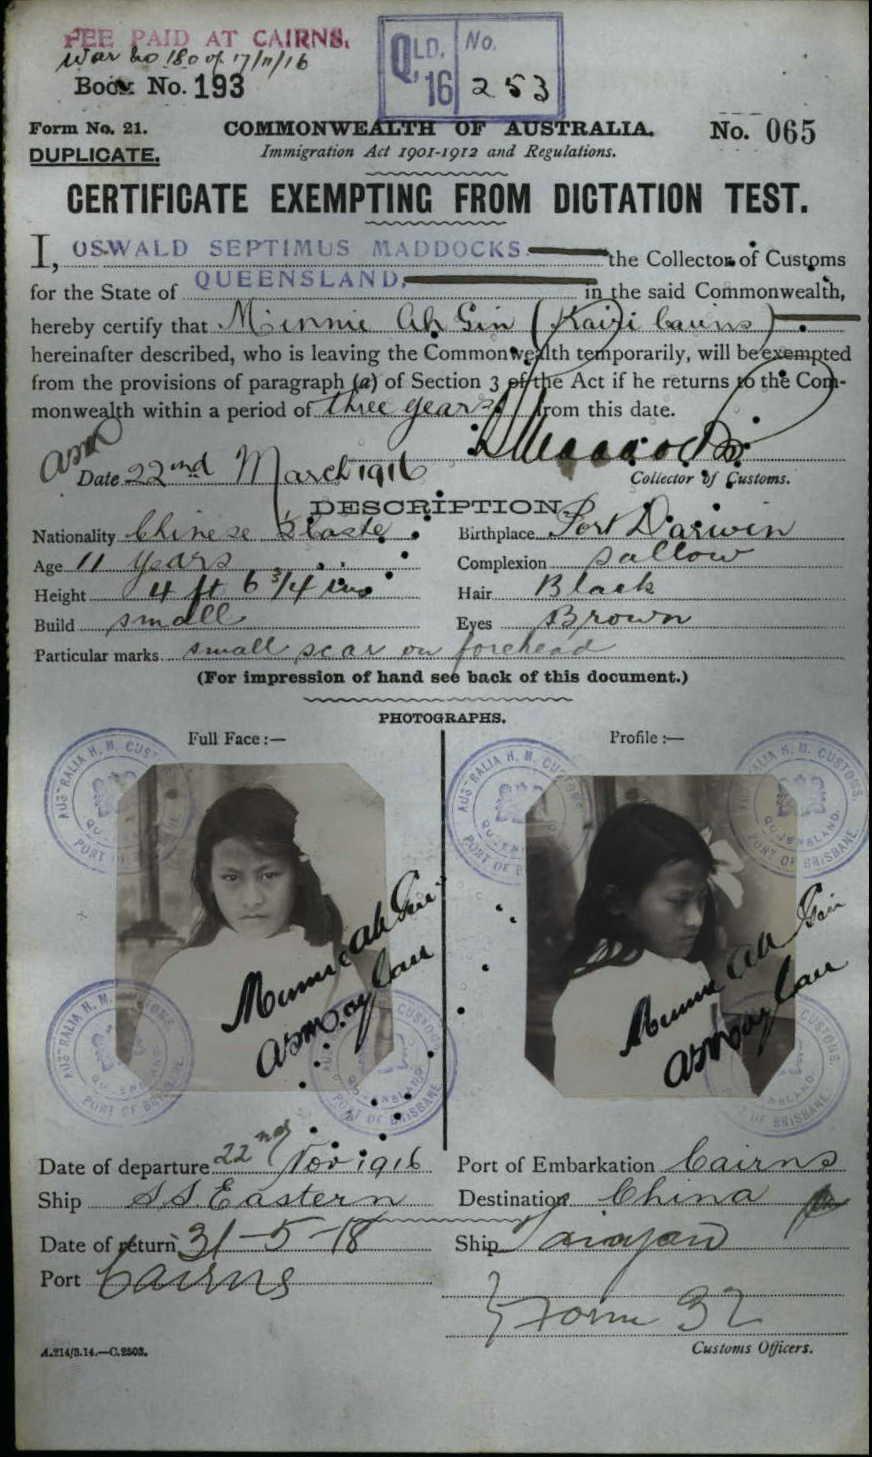 FEE PAID AT CAIRNS.
War no 180 of 17/11/16
Book No. 193
QLD. '16 No. 253
Form No. 21.
DUPLICATE.
COMMONWEALTH OF AUSTRALIA.
Immigration Act 1901-1912 and Regulations.
No. 065
CERTIFICATE EXEMPTING FROM DICTATION TEST.
I, OSWALD SEPTIMUS MADDOCKS the Collector of Customs
for the State of QUEENSLAND, in the said Commonwealth,
hereby certify that Minnie Ah Gin (Kairi Cairns)
hereinafter described, who is leaving the Commonwealth temporarily, will be exempted
from the provisions of paragraph (a) of Section 3 of the Act if he returns to the Com-
monwealth within a period of three years from this date.
Date 22nd March 1916
Collector of Customs.
DESCRIPTION.
Nationality Chinese H/caste Birthplace Port Darwin
Age 11 years Complexion sallow
Height 4 ft 6 3/4 ins Hair Black
Build small Eyes Brown
Particular marks small scar on forehead
(For impression of hand see back of this document.)
PHOTOGRAPHS.
Full Face :— Profile :—
AUSTRALIA H. M. CUSTOMS. QUEENSLAND. PORT OF BRISBANE
Minnie Ah Gin
Minnie Ah Gin
Date of departure 22nd Nov 1916 Port of Embarkation Cairns
Ship SS Eastern Destination China
Date of return 31-5-18 Ship Taiyuan
Port Cairns
Form 32
Customs Officers.
A.214/3.14.—C.2503.